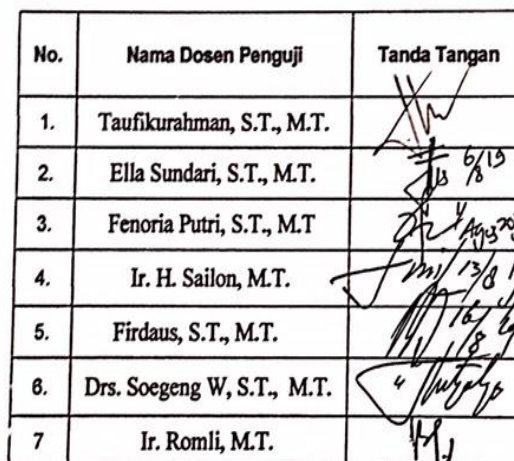 No. Nama Dosen Penguji Tanda Tangan
1. Taufikurahman, S.T., M.T.
2. Ella Sundari, S.T., M.T. 6/8 19
3. Fenoria Putri, S.T., M.T
4. Ir. H. Sailon, M.T. 13/8
5. Firdaus, S.T., M.T. 16/8
6. Drs. Soegeng W, S.T., M.T.
7 Ir. Romli, M.T.